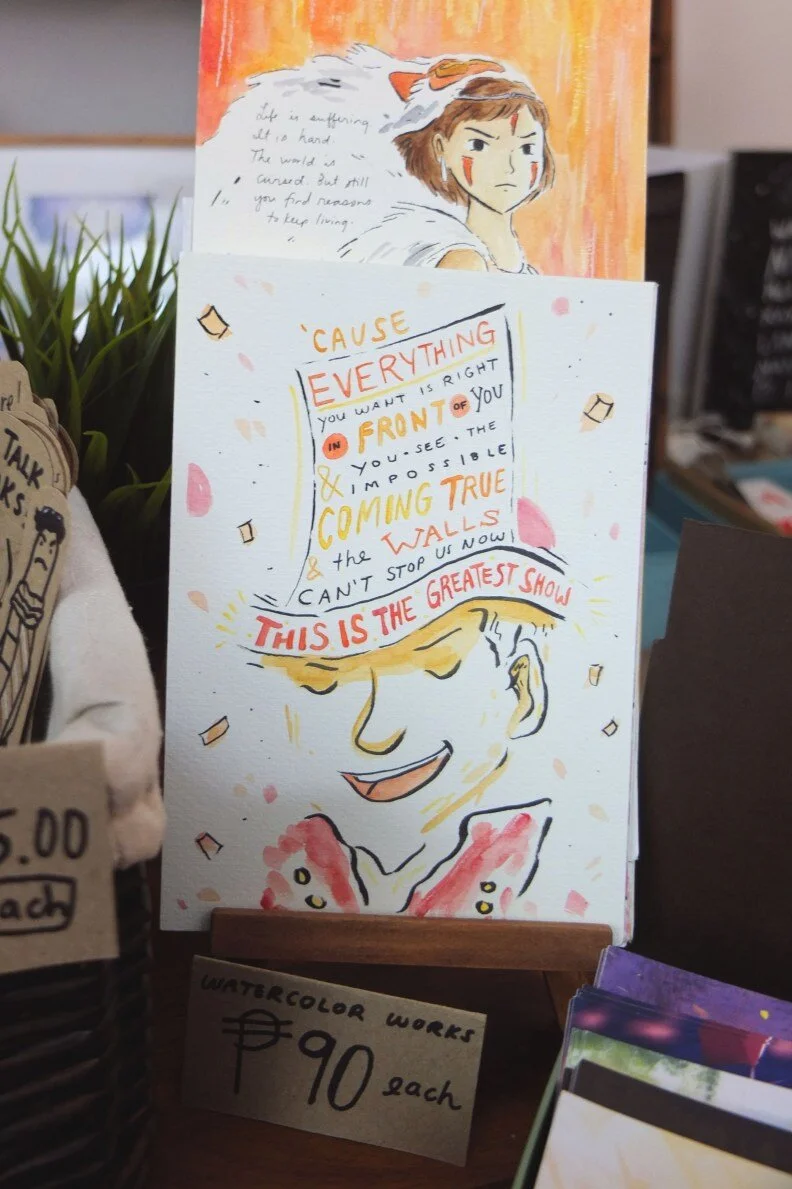 Life is suffering
It is hard.
The world is
cursed. But still
you find reasons
to keep living.
'CAUSE
EVERYTHING
YOU WANT IS RIGHT
IN FRONT OF YOU
& YOU • SEE • THE
IMPOSSIBLE
COMING TRUE
& the WALLS
CAN'T STOP US NOW
THIS IS THE GREATEST SHOW
TALK
5.00
each
WATERCOLOR WORKS
₱90 each